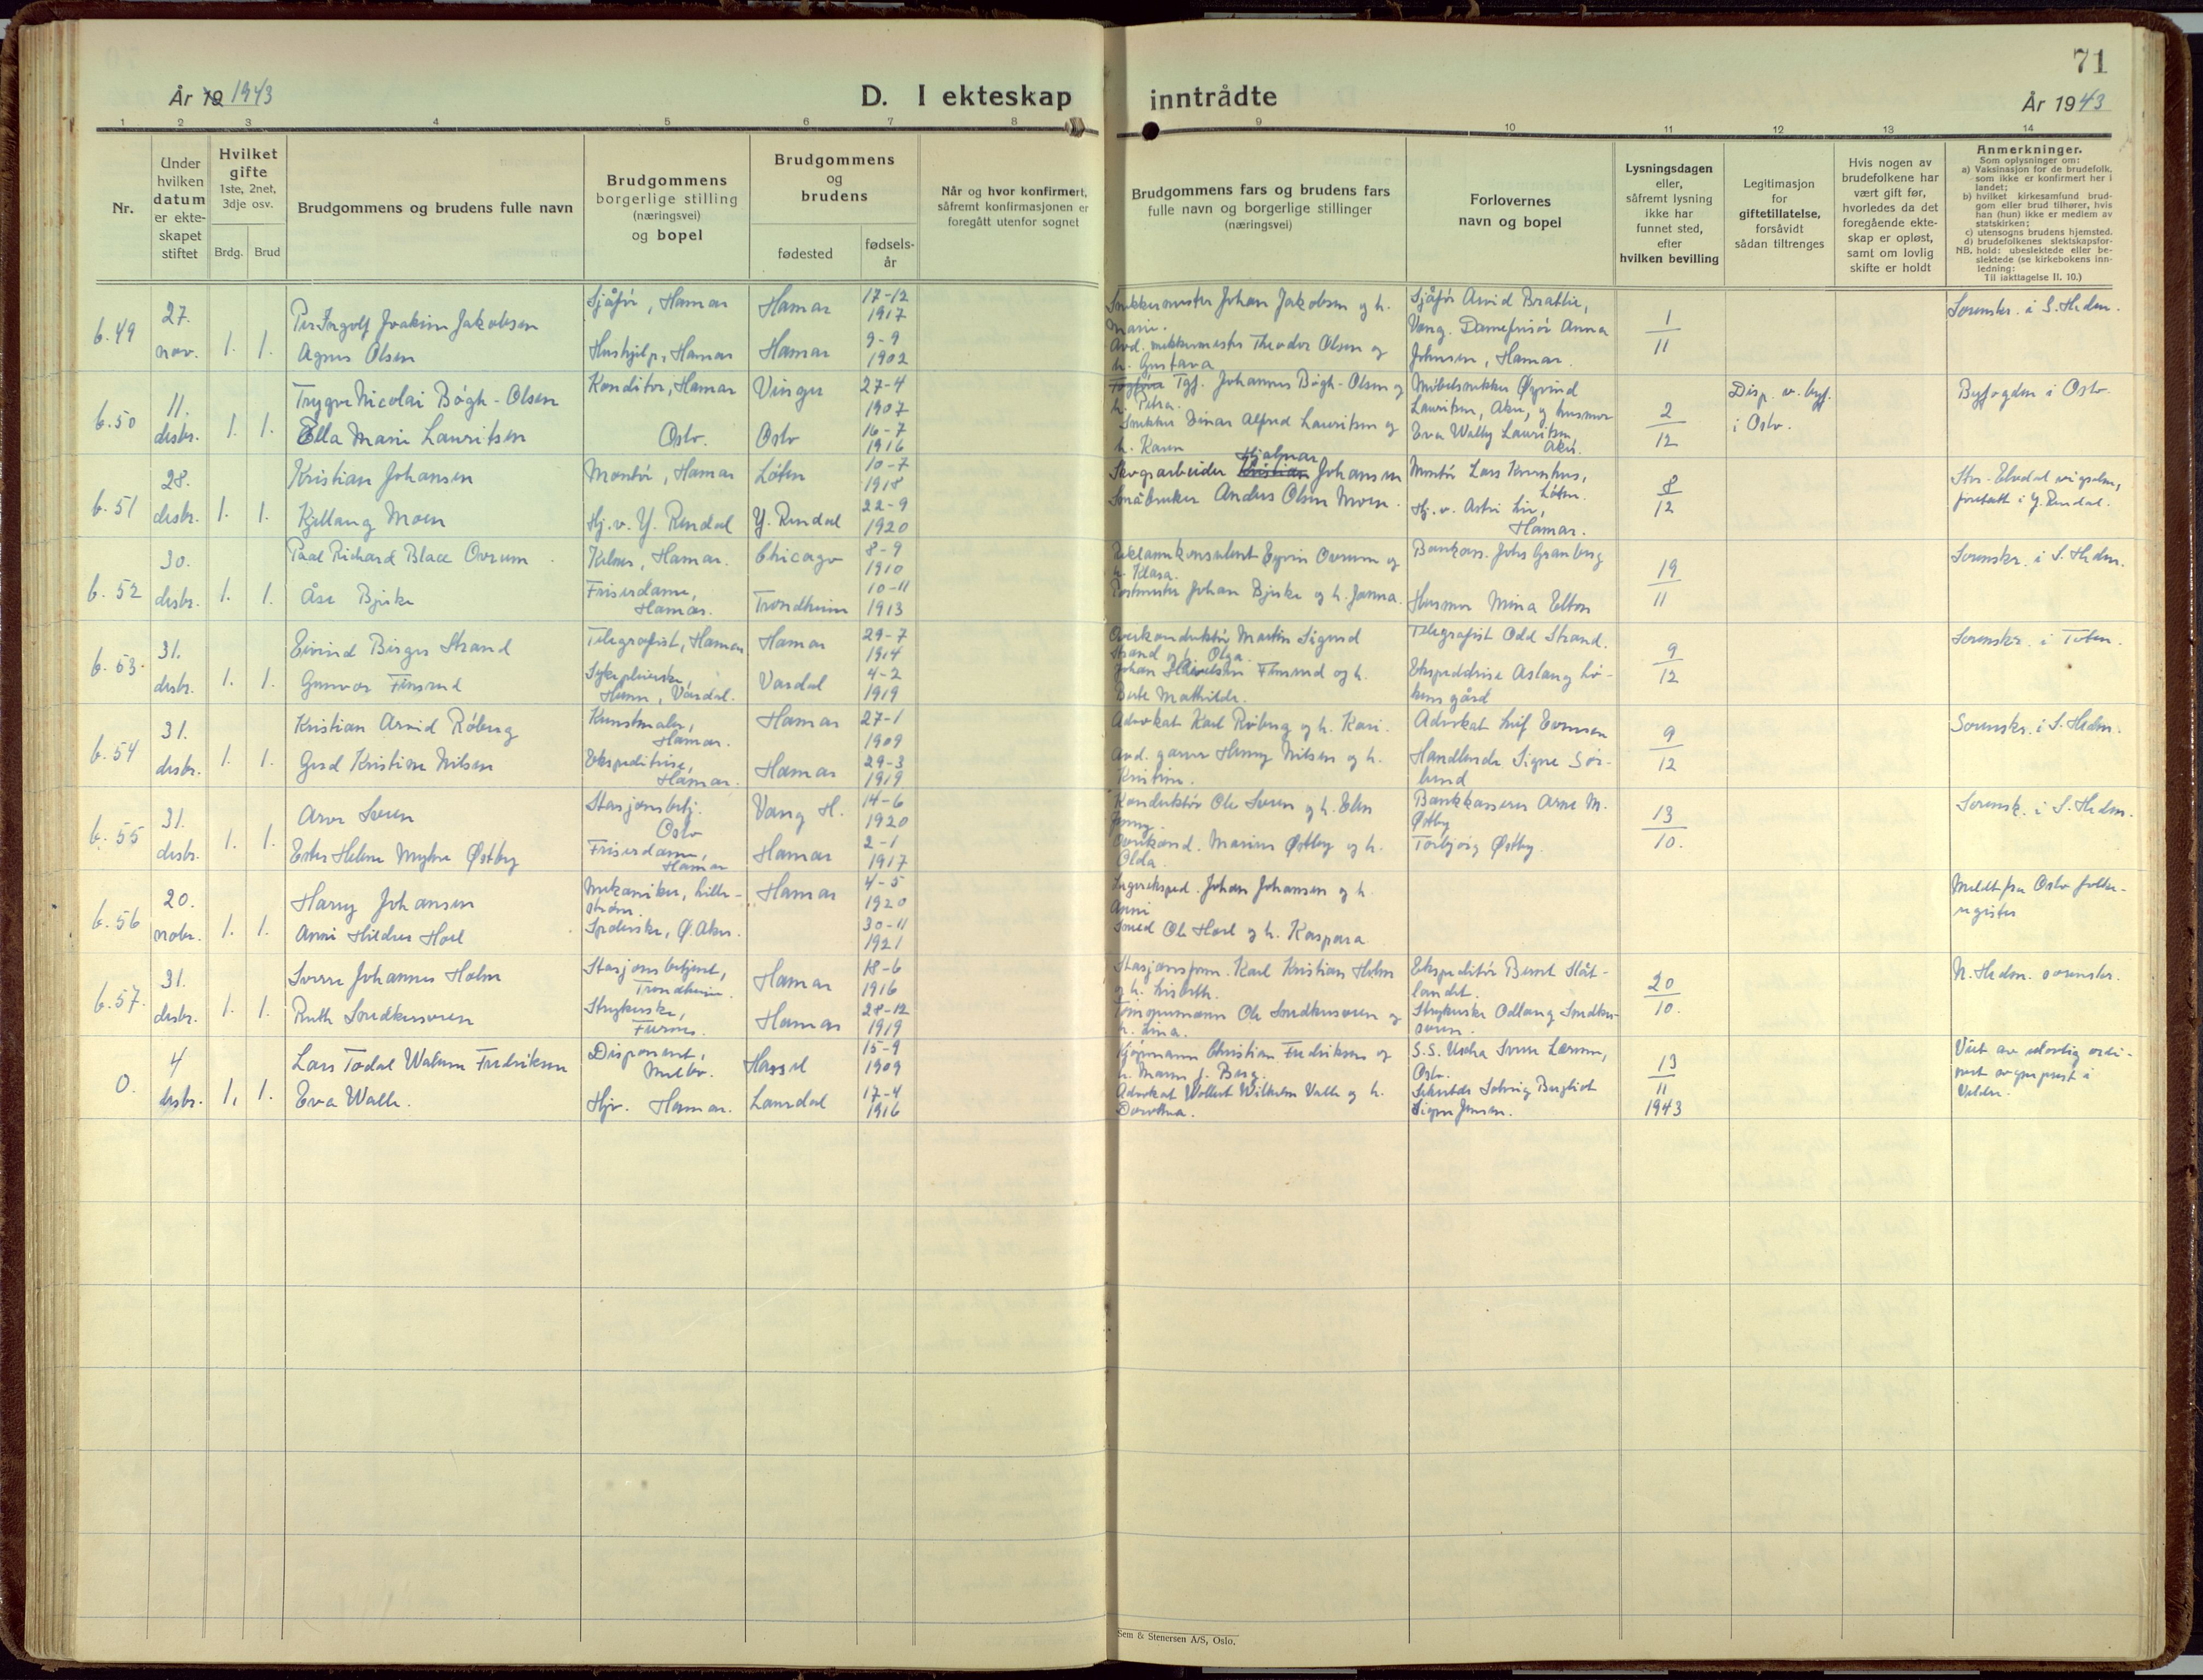 71
År 19 1943
D. I ekteskap inntrådte
År 1943
1 2 3 4 5 6 7 8 9 10 11 12 13 14
Nr.
Under
hvilken
datum
er ekte-
skapet
stiftet
Hvilket
gifte
1ste, 2net,
3dje osv.
Brdg. Brud
Brudgommens og brudens fulle navn
Brudgommens
borgerlige stilling
(næringsvei)
og bopel
Brudgommens
og
brudens
fødested
fødsels-
år
Når og hvor konfirmert,
såfremt konfirmasjonen er
foregått utenfor sognet
Brudgommens fars og brudens fars
fulle navn og borgerlige stillinger
(næringsvei)
Forlovernes
navn og bopel
Lysningsdagen
eller,
såfremt lysning
ikke har
funnet sted,
efter
hvilken bevilling
Legitimasjon
for
giftetillatelse,
forsåvidt
sådan tiltrenges
Hvis nogen av
brudefolkene har
vært gift før,
hvorledes da det
foregående ekte-
skap er opløst,
samt om lovlig
skifte er holdt
Anmerkninger.
Som oplysninger om:
a) Vaksinasjon for de brudefolk,
som ikke er konfirmert her i
landet;
b) hvilket kirkesamfund brud-
gom eller brud tilhører, hvis
han (hun) ikke er medlem av
statskirken;
c) utensogns brudens hjemsted.
d) brudefolkenes slektskapsfor-
hold: ubeslektede eller be-
slektede (se kirkebokens inn-
ledning:
NB.
Til iakttagelse II. 10.)
b. 49
27.
nov.
1. 1.
Per Ingolf Joakim Jakobsen
Agnes Olsen
Sjåfør, Hamar
Hushjelp, Hamar
Hamar
Hamar
17-12
1917
9-9
1902
Snekkermester Johan Jakobsen og h.
Marie.
Avd. snekkermester Theodor Olsen og
h. Gustava
Sjåfør Arvid Brattlie,
Vang. Damefrisør Anna
Johnsen, Hamar.
1
11
Sorenskr. i S. Hedm.
b. 50
11.
desbr.
1. 1.
Trygve Nicolai Bøgh-Olsen
Ella Marie Lauritsen
Konditor, Hamar
Oslo.
Vinger
Oslo
27-4
1907
16-7
1916
Tgf. Johannes Bøgh-Olsen og
h. Petra.
Snekker Einar Alfred Lauritsen og
h. Karen
Møbelsnekker Øyvind
Lauritsen, Aker, og husmor
Eva Wally Lauritsen,
Aker.
2
12
Disp. v. byf.
i Oslo.
Byfogden i Oslo.
b. 51
28.
desbr.
1. 1.
Kristian Johansen
Kjellaug Moen
Montør, Hamar
Hj. v. Y. Rendal
Løten
Y. Rendal
10-7
1918
22-9
1920
Hjalmar
Skogsarbeider Kristian Johansen
Småbruker Anders Olsen Moen.
Montør Lars
Løten.
Hj. v. Astri Lie,
Hamar.
8
12
Stor-Elvdal vigselm,
foretatt i Y. Rendal.
b. 52
30.
desbr.
1. 1.
Paal Richard Blace Ovrum
Åse Bjerke
Kelner, Hamar.
Friserdame,
Hamar.
Chicago
Trondheim
8-9
1910
10-11
1913
Reklamekonsulent Eyvin Ovrum og
h. Klara.
Postmester Johan Bjerke og h. Janna.
Bankass. Johs Granberg
Husmor Mina Elton
19
11
Sorenskr. i S. Hedm.
b. 53.
31.
desbr.
1. 1.
Eivind Birger Strand
Gunvor Finsrud
Telegrafist, Hamar
Sykepleierske,
Hunn, Vardal.
Hamar
Vardal
29-7
1914
4-2
1919
Overkonduktør Martin Sigurd
Strand og h. Olga
Johan Finsrud og h.
Berte Mathilde.
Telegrafist Odd Strand.
Ekspeditrise Aslaug Lø-
kensgård
9
12
Sorenskr. i Toten.
b. 54
31.
desbr.
1. 1.
Kristian Arvid Røberg
Gerd Kristine Nilsen
Kunstmaler,
Hamar.
Ekspeditrise,
Hamar.
Hamar
Hamar
27-1
1909
29-3
1919
Advokat Karl Røberg og h. Kari.
Avd. garver Henry Nilsen og h.
Kristine.
Advokat Leif Evensen
Handlende Signe Sør-
lund
9
12
Sorenskr. i S. Hedm.
b. 55
31.
desbr.
1. 1.
Arve Sveen
Ester Helene Myhre Østby
Stasjonsbetj.
Oslo
Friserdame,
Hamar
Vang H.
Hamar
14-6
1920
2-1
1917
Konduktør Ole Sveen og h. Elen
Jenny.
Overkond. Marius Østby og h.
Olda.
Bankkasserer Arne M.
Østby
Torbjørg Østby.
13
10.
Sorensk. i S. Hedm.
b. 56
20.
nobr.
1. 1.
Harry Johansen
Anni Hildur Hoel
Mekaniker, Lille-
strøm.
Syerske, Ø. Aker.
Hamar
4-5
1920
30-11
1921
Lagereksped. Johan Johansen og h.
Anni
Smed Ole Hoel og h. Kaspara
Meldt fra Oslo folke-
register
b. 57.
31.
desbr.
1. 1.
Sverre Johannes Holm
Ruth Smedkusveen
Stasjonsbetjent,
Trondheim.
Strykerske,
Furnes.
Hamar
Hamar
18-6
1916
28-12
1919
Stasjonsform. Karl Kristian Holm
og h. Lisbeth.
Tømmermann Ole Smedkusveen og
h. Lina.
Ekspeditør Bernt Slåt-
landet.
Strykerske Odlaug Smedku-
sveen.
20
10.
N. Hedm. sorenskr.
0.
4
desbr.
1. 1.
Lars Todal Walum Fredriksen
Eva Walle.
Disponent,
Melbo.
Hjv. Hamar.
Hassel
Lardal
15-9
1909
17-4
1916
Kjøpmann Christian Fredriksen og
h. Maren f. Berg.
Advokat Wollert Wilhelm Valle og h.
Dorothea.
S.S. Uscha Sverre Lærum,
Oslo.
Solveig Bergliot
Signe Jensen.
13
11
1943
Viet av ulovlig ordi-
nert sogneprest i
Veldre.
Sem & Stenersen A/S, Oslo.